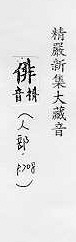 精嚴新集大藏音
俳 音排
(人部, p708)